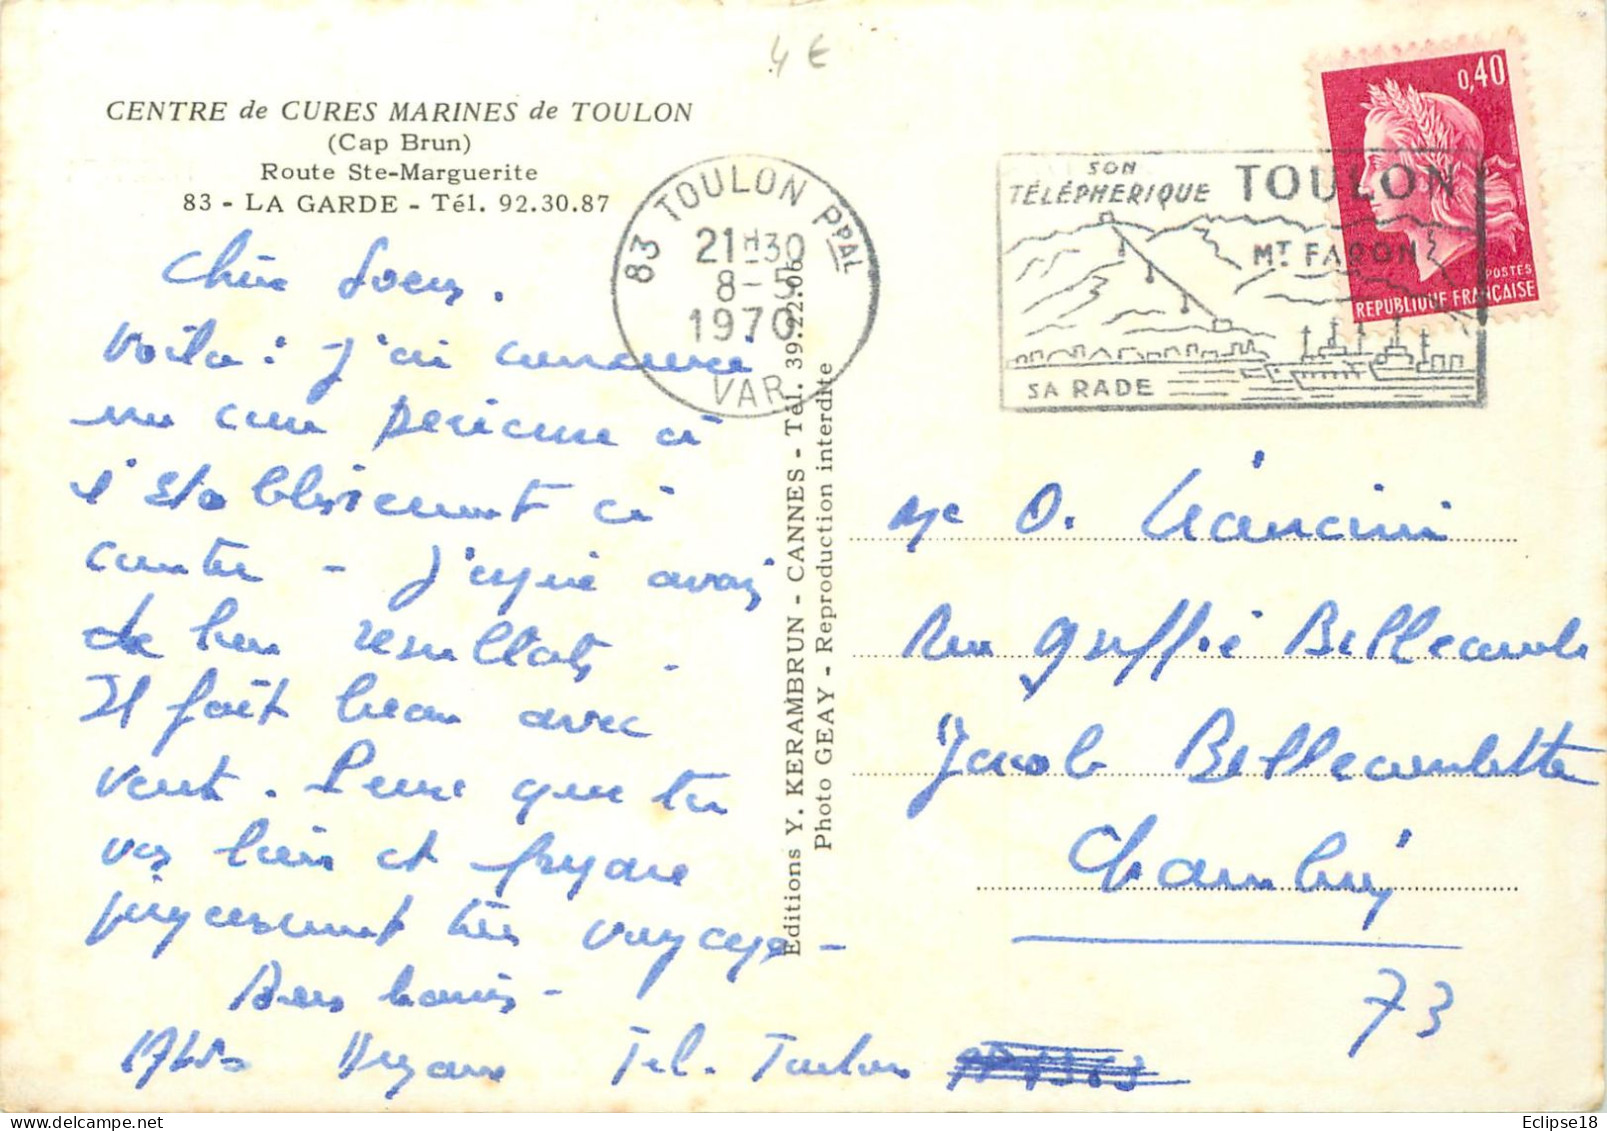 4 €
CENTRE de CURES MARINES de TOULON
(Cap Brun)
Route Ste-Marguerite
83 - LA GARDE - Tél. 92.30.87
83 TOULON PPAL
21H30
8-5
1970
VAR
SON
TÉLÉPHERIQUE TOULON
MT FARON
SA RADE
0,40
POSTES
REPUBLIQUE FRANÇAISE
Chère Soeur.
Voilà : j'ai commencé
ma cure
l'établissement ci
contre - J'espère avoir
de bon resultats.
Il fait beau avec
vent. Pense que tu
vas bien et
très voyage -
Bons baisers -
Tel. Toulon
Editions Y. KERAMBRUN - CANNES - Tél. 39.22.06
Photo GEAY - Reproduction interdite
Me O.
Rue Bellecombe
Jacob Bellecombette
Chambéry
73
Eclipse18